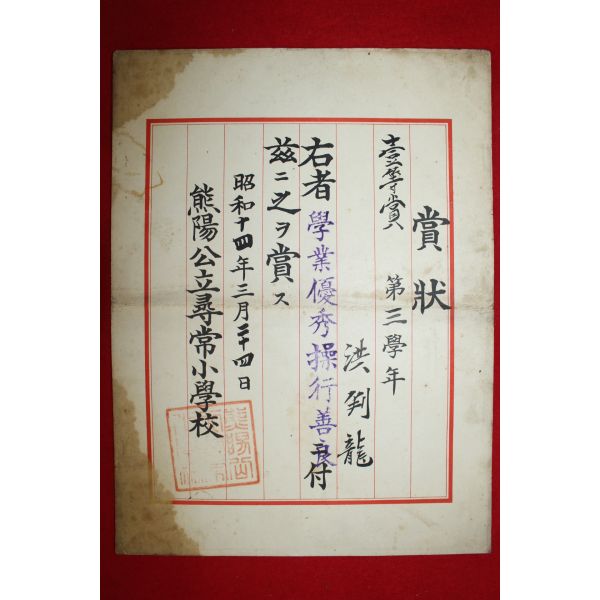 賞狀
壹等賞 第三學年
洪判龍
右者學業優秀操行善良ニ付
茲ニ之ヲ賞ス
昭和十四年三月二十四日
熊陽公立尋常小學校